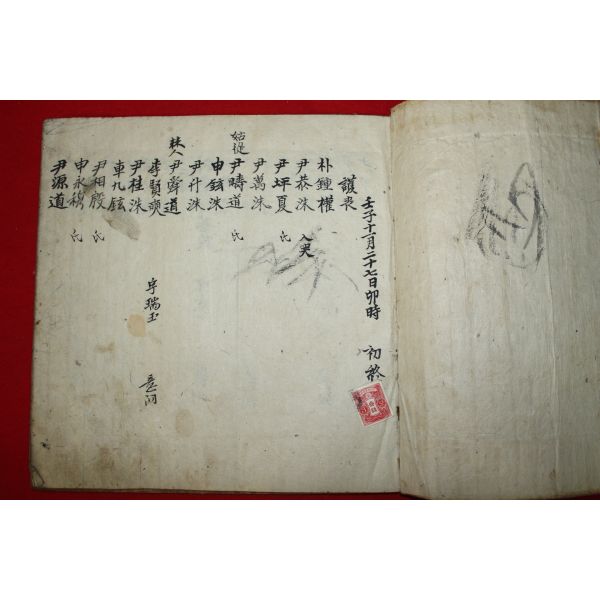 壬子十一月二十七日卯時 初終
護喪
朴鍾權
尹恭洙 入哭
尹坪夏 氏
尹萬洙
姑從 尹疇道 氏
申鉉洙
尹升洙
尹舜道
李賢奭 字瑞玉
尹桂洙
車九鉉
尹相殷 氏
申永穆 氏
尹源道